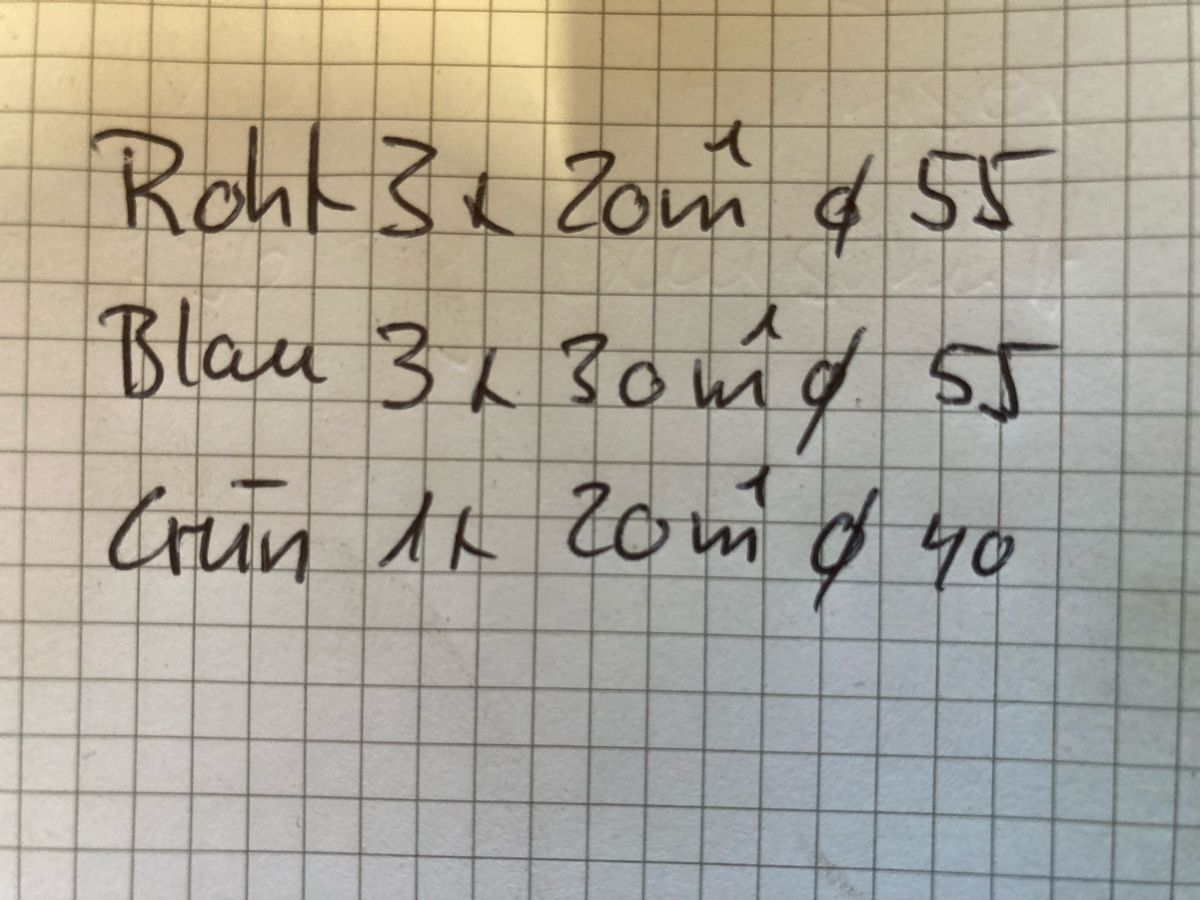 Roht 3 x 20 m¹ ø 55
Blau 3 x 30 m¹ ø 55
Grün 1 x 20 m¹ ø 40